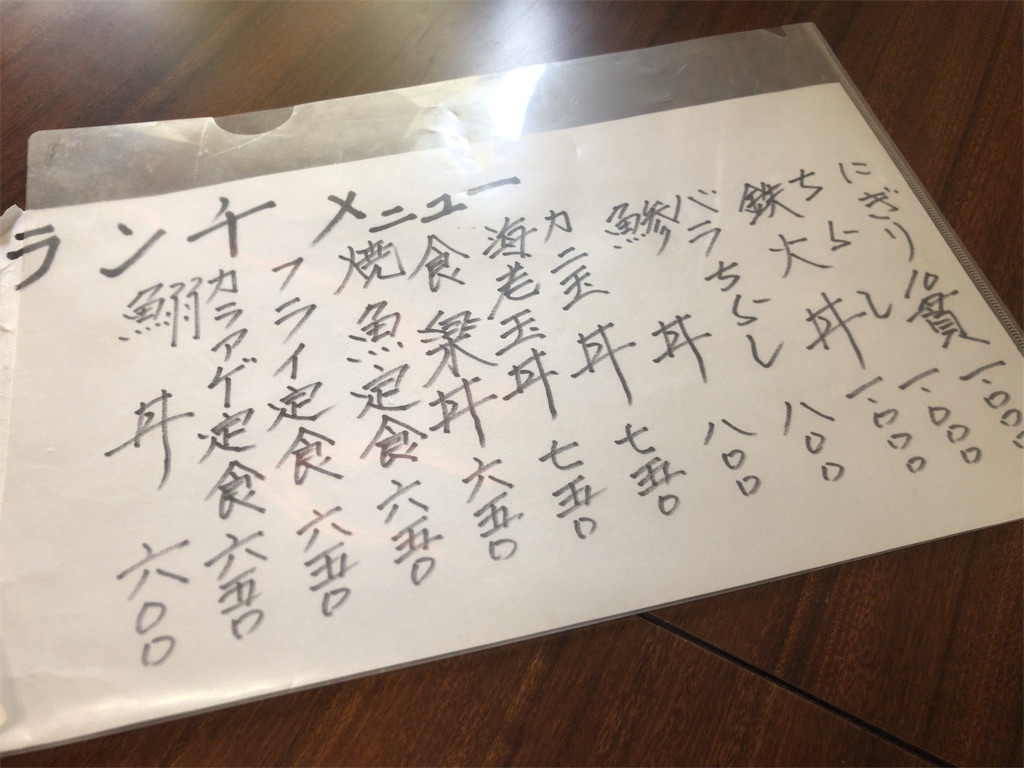 ランチメニュー
にぎり10貫 一.〇〇〇
ちらし 一.〇〇〇
鉄火丼 一.〇〇〇
バラちらし 八〇〇
鯵丼 八〇〇
カニ玉丼 七五〇
海老玉丼 七五〇
食楽丼 六五〇
焼魚定食 六五〇
フライ定食 六五〇
カラアゲ定食 六五〇
鰯丼 六〇〇